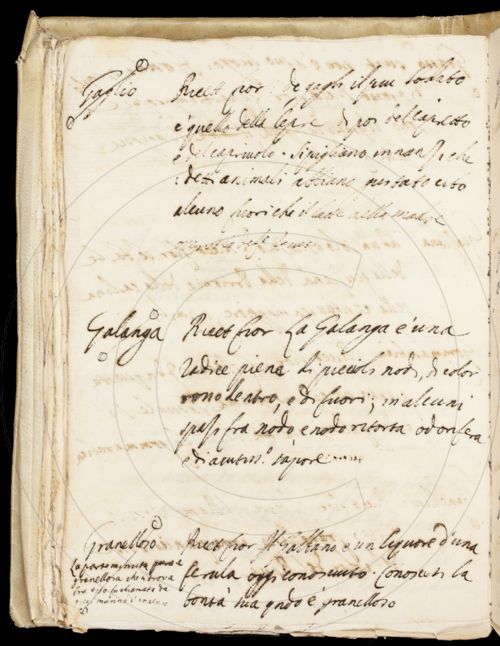 Gaglio
Ricet fior: de gagli il piu lodato
è quello della lepre di poi del Capretto
e del capriuolo. Si pigliano innanzi che
i detti animali abbiano gustato cibo
alcuno fuori che il latte della madre
Galanga
Ricet fior La Galanga è una
radice piena di piccioli nodi, di color
rosso dentro, e di fuori; in alcuni
spazi fra nodo e nodo ritorta odorifera
e di acutiss.o sapore
Granelloso
La parte
granellosa che si trova
Ricet fior Il Galbano è un liquore d'una
ferula oggi conosciuto. Conoscesi la
bontà sua qndo è granelloso